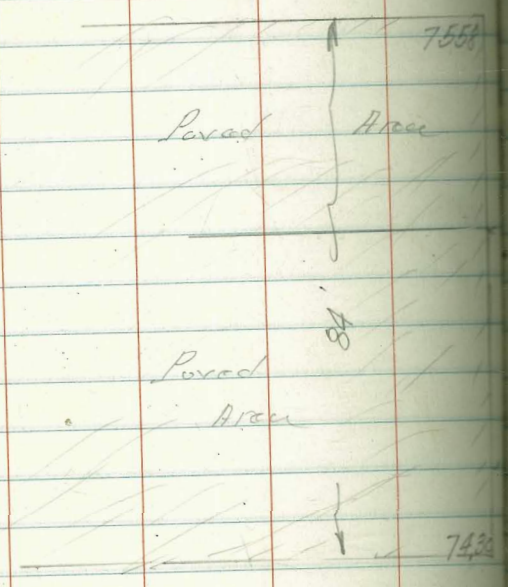 7558
Paved Area
84'
Paved
Area